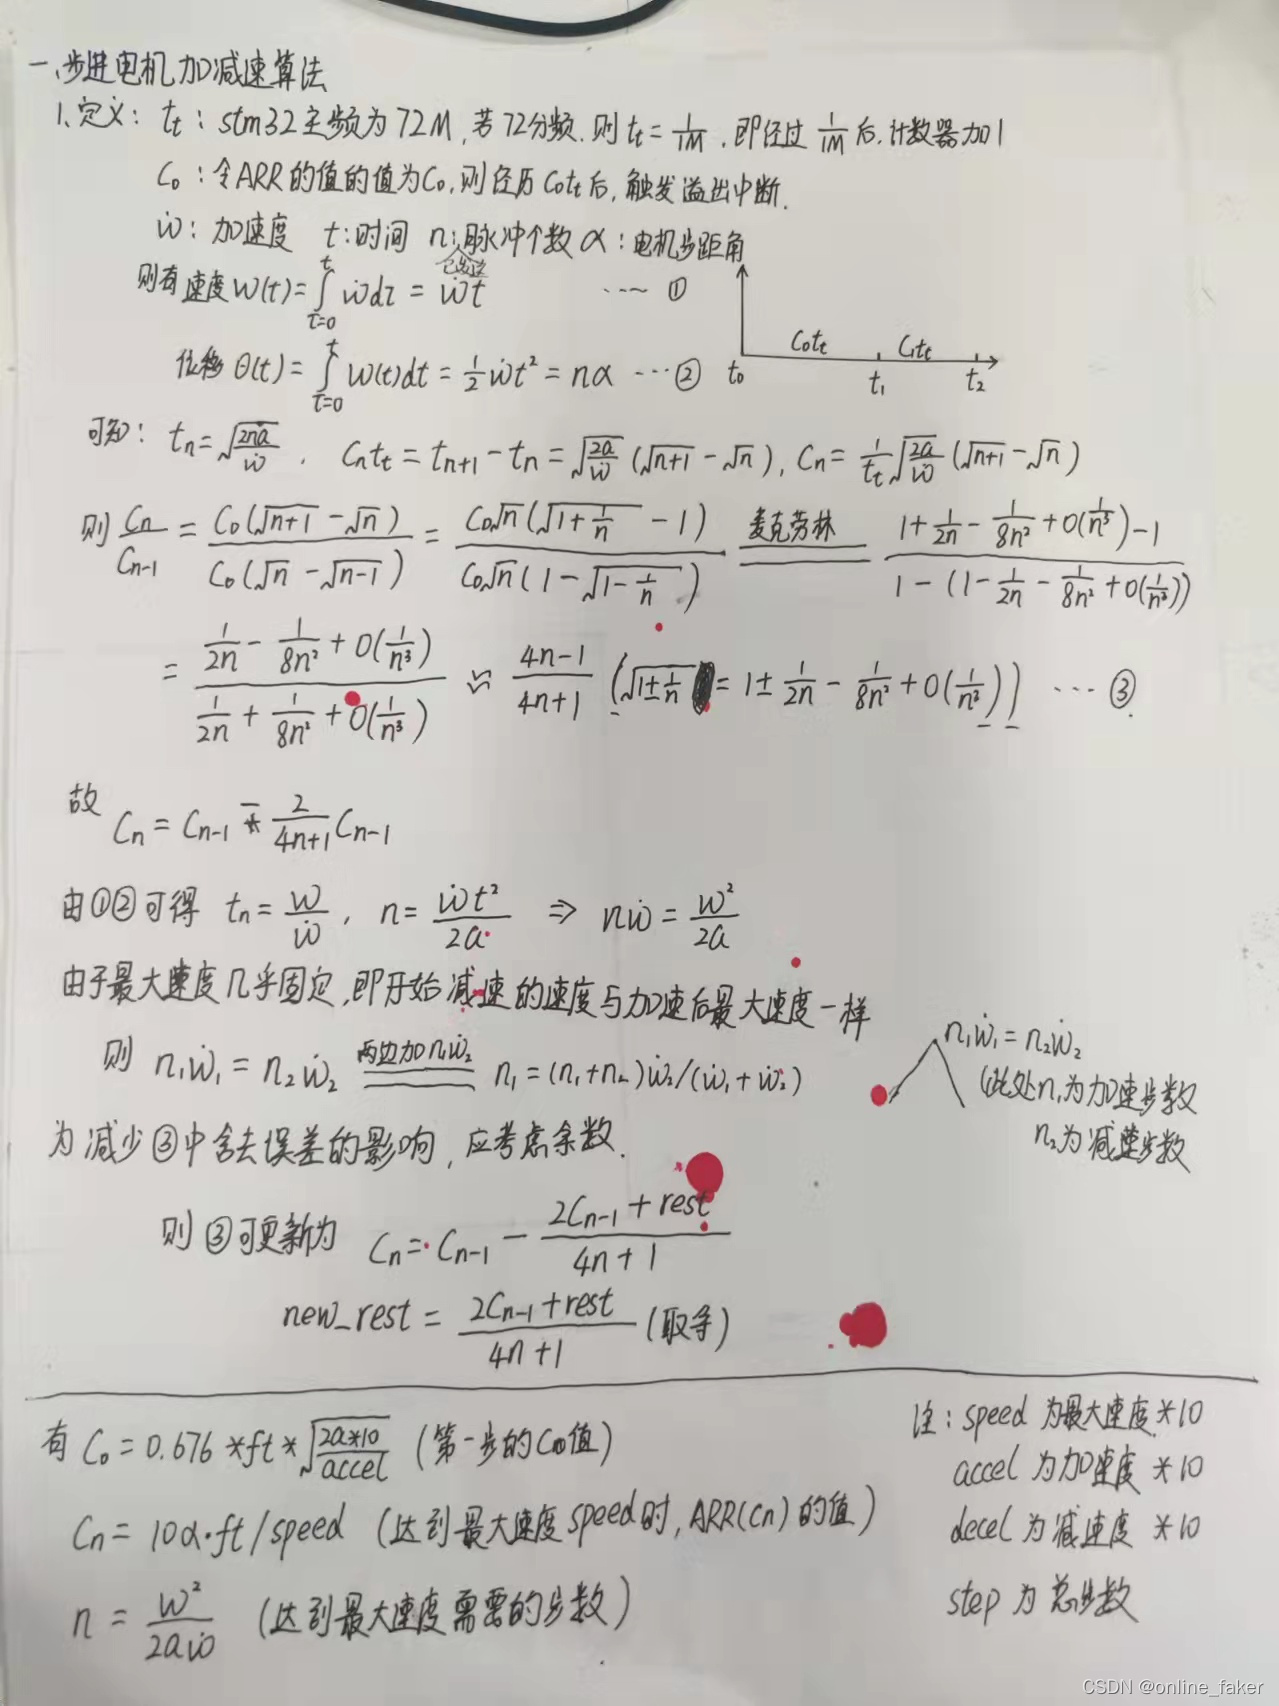 一、步进电机加减速算法
1、定义： t_t：stm32主频为72M，若72分频，则 t_t = 1/1M，即经过 1/1M 后，计数器加1
C₀：令ARR的值的值为C₀，则经历C₀t_t后，触发溢出中断.
ẇ：加速度 t：时间 n：脉冲个数 α：电机步距角
则有速度 W(t) = ∫_{τ=0}^{t} ẇdτ = ẇt ---- ①
位移 θ(t) = ∫_{τ=0}^{t} W(t)dt = 1/2 ẇt² = nα ··· ②
C₀t_t C₁t_t
t₀ t₁ t₂
可知： t_n = √(2na/ẇ) , C_n t_t = t_{n+1} - t_n = √(2a/ẇ) (√(n+1) - √n), C_n = 1/t_t √(2a/ẇ) (√(n+1) - √n)
则 C_n/C_{n-1} = C₀(√(n+1) - √n) / C₀(√n - √(n-1)) = C₀√n(√(1+1/n) - 1) / C₀√n(1 - √(1-1/n)) 麦克劳林 (1+1/2n - 1/8n² + O(1/n³) - 1) / (1 - (1 - 1/2n - 1/8n² + O(1/n³)))
= (1/2n - 1/8n² + O(1/n³)) / (1/2n + 1/8n² + O(1/n³)) ≈ (4n-1)/(4n+1) (√(1±1/n) = 1 ± 1/2n - 1/8n² + O(1/n³)) ··· ③
故 C_n = C_{n-1} - 2/(4n+1) C_{n-1}
由①②可得 t_n = W/ẇ , n = ẇt²/2a ⇒ nẇ = W²/2a
由于最大速度几乎固定，即开始减速的速度与加速后最大速度一样
则 n₁ẇ₁ = n₂ẇ₂ 两边加n₁ẇ₂ n₁ = (n₁+n₂)ẇ₂/(ẇ₁+ẇ₂)
n₁ẇ₁ = n₂ẇ₂
(此处n₁为加速步数
n₂为减速步数
为减少③中舍去误差的影响，应考虑余数.
则③可更新为 C_n = C_{n-1} - (2C_{n-1} + rest)/(4n+1)
new_rest = (2C_{n-1} + rest)/(4n+1) (取余)
有 C₀ = 0.676 * ft * √(2a*10/accel) (第一步的C₀值)
C_n = 10α·ft/speed (达到最大速度speed时，ARR(Cn)的值)
n = W²/2aẇ (达到最大速度需要的步数)
注：speed 为最大速度*10
accel 为加速度 *10
decel 为减速度 *10
step 为总步数
CSDN @online_faker